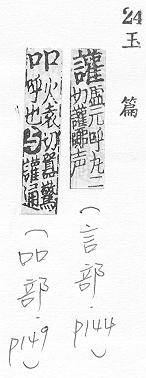 24
玉篇
讙 虛元呼丸二切讙嚻声
(言部·p144)
吅 火袁切嚚驚呼也与讙通
(吅部·p149)